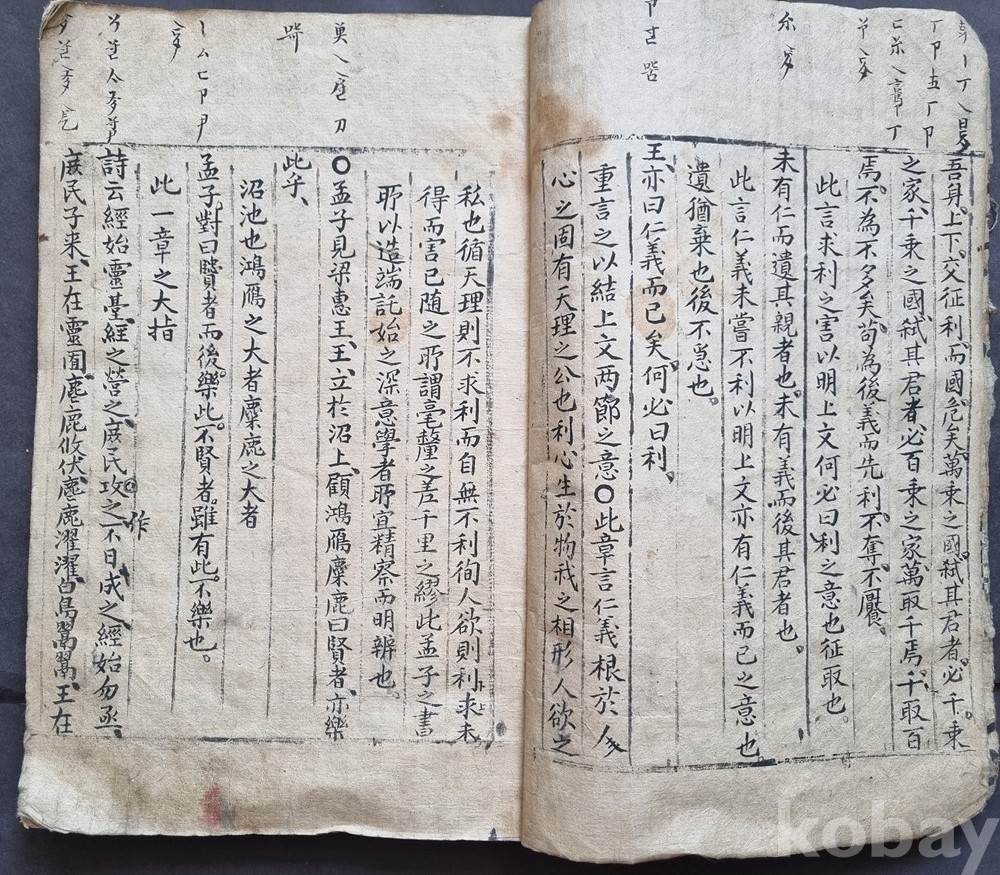 吾身。上下。交征利。而國。危矣。萬乘之國。弑其君者。必千。乘
之家、千乘之國、弑其君者、必百乘之家、萬取千焉。千取百
焉。不為不多矣、苟為後義而先利。不奪。不饜。
此言求利之害以明上文何必曰利之意也征取也。
未有仁而遺其親者也。未有義而後其君者也。
此言仁義未嘗不利以明上文亦有仁義而已之意也
遺猶棄也後不急也。
王、亦曰仁義而已矣。何必曰利、
重言之以結上文两節之意○此章言仁義根於人
心之固有天理之公也利心生於物我之相形人欲之
私也循天理則不求利而自無不利徇人欲則利求未
得而害已随之所謂毫釐之差千里之繆此孟子之書
所以造端託始之深意學者所宜精察而明辨也。
○孟子見梁惠王、王、立於沼上、顧鴻鴈麋鹿曰賢者、亦樂
此乎、
沼池也鴻鴈之大者麋鹿之大者
孟子、對曰賢者而後。樂此。不賢者。雖有此。不樂也。
此一章之大指
詩云經始靈臺、經之營之、庶民攻之、不日成之、經始勿亟、
作
庶民子来、王在靈囿、麀鹿攸伏、麀鹿濯濯、白鳥鶴鶴、王在
kobay